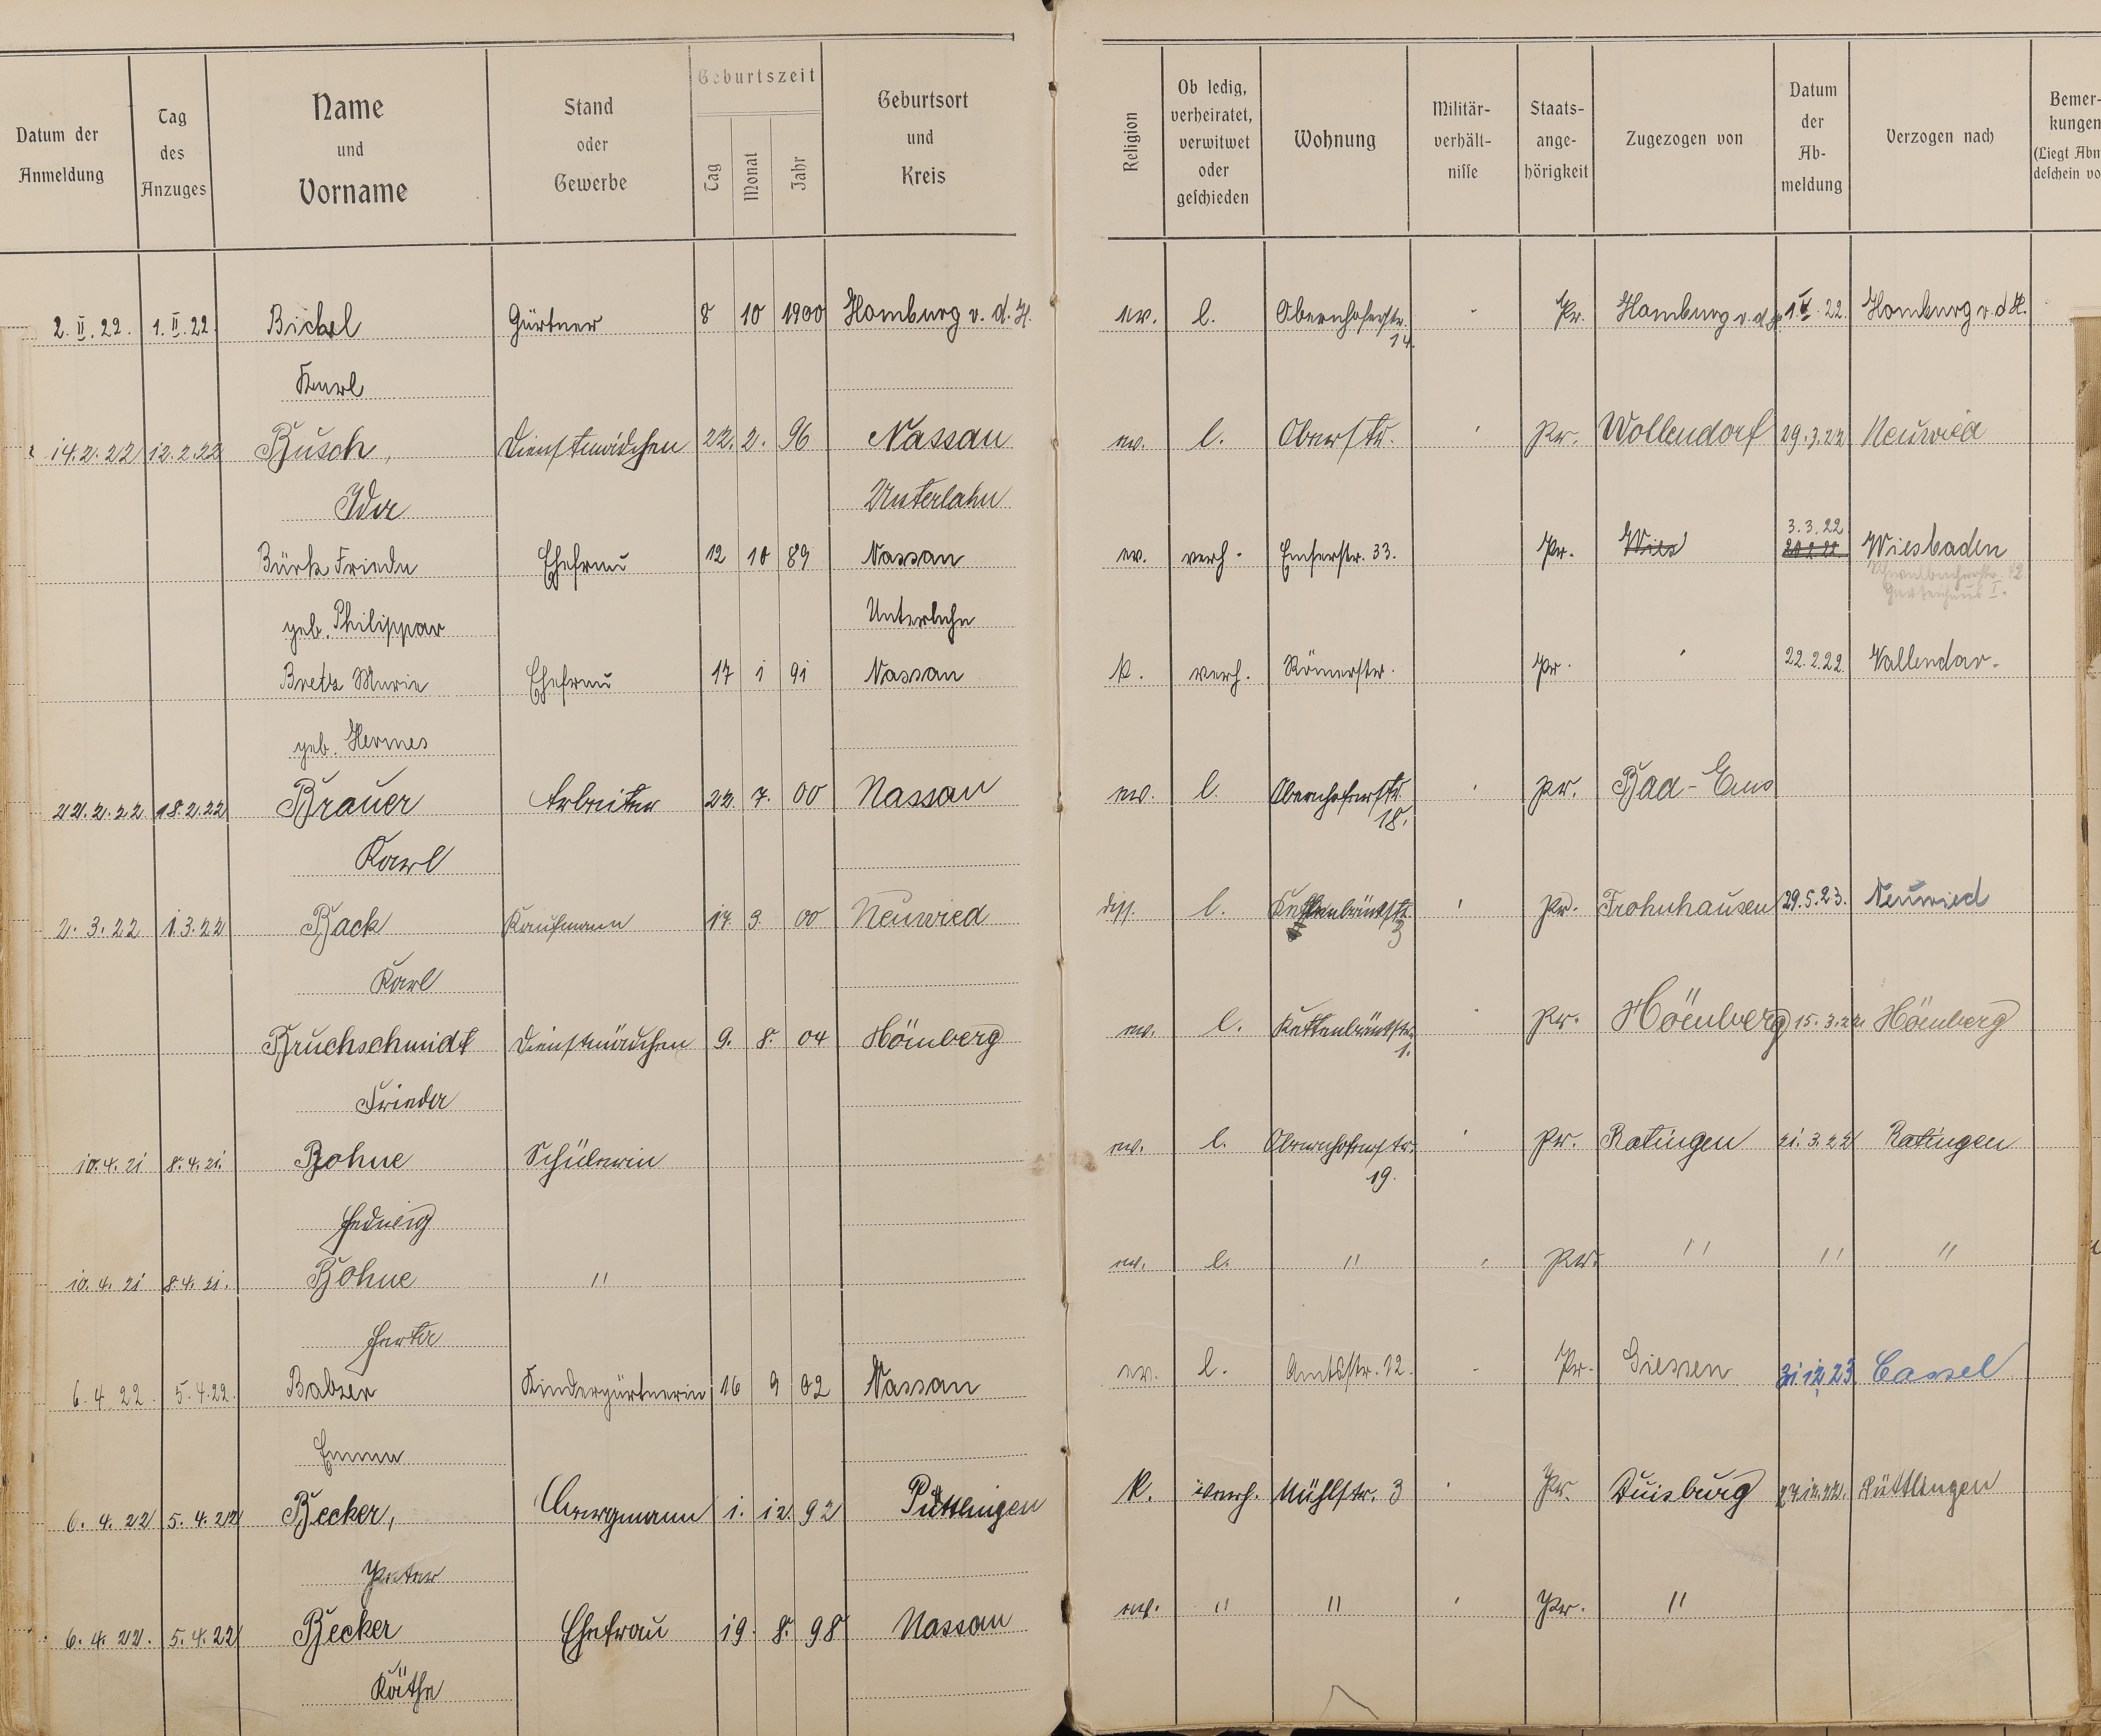 Datum der Anmeldung | Tag des Anzuges | Name und Vorname | Stand oder Gewerbe | Geburtszeit Tag | Monat | Jahr | Geburtsort und Kreis | Religion | Ob ledig, verheiratet, verwitwet oder geschieden | Wohnung | Militär-verhält-nisse | Staats-ange-hörigkeit | Zugezogen von | Datum der Ab-meldung | Verzogen nach | Bemer-kungen
2. II. 22. | 1. II. 22. | Bickel | Gärtner | 8 | 10 | 1900 | Homburg v. d. H. | ev. | l. | Obernhoferstr. 14. | Pr. | Homburg v. d. H. | 22. | Homburg v. d. H.
Karl
14. 2. 22 | 12. 2. 22 | Busch, | Dienstmädchen | 22. | 2. | 96 | Nassau | ev. | l. | Oberstr. | Pr. | Wollendorf | 29. 3. 22 | Neuwied
Ida | Unterlahn
3. 3. 22
Bürk Frieda | Ehefrau | 12 | 10 | 89 | Nassau | ev. | verh. | Emserstr. 33. | Pr. | Wies | Wiesbaden
geb. Philippar | Unterlahn
Bretz Marie | Ehefrau | 17 | 1 | 91 | Nassau | k. | verh. | Römerstr. | Pr. | 22. 2. 22. | Vallendar.
geb. Hermes
22. 2. 22. | 18. 2. 22 | Brauer | Arbeiter | 22. | 7. | 00 | Nassau | ev. | l. | Obernhoferstr. 18. | Pr. | Bad-Ems
Karl
2. 3. 22 | 1. 3. 22 | Back | Kaufmann | 17. | 3. | 00 | Neuwied | diss. | l. | Kettenbrückstr. 3 | Pr. | Frohnhausen | 29. 5. 23. | Neuwied
Karl
Bruchschmidt | Dienstmädchen | 9. | 8. | 04 | Hömberg | ev. | l. | Kettenbrückstr. 1. | Pr. | Hömberg | 15. 3. 22 | Hömberg
Frieda
10. 4. 21 | 8. 4. 21. | Bohne | Schülerin | ev. | l. | Obernhoferstr. 19. | Pr. | Ratingen | 21. 3. 22 | Ratingen
Hedwig
10. 4. 21 | 8. 4. 21. | Bohne | " | ev. | l. | " | Pr. | " | " | "
Herta
6. 4. 22. | 5. 4. 22. | Balzer | Kindergärtnerin | 16 | 9 | 02 | Nassau | ev. | l. | Amtsstr. 12. | Pr. | Giessen | 31 12 23. | Cassel
Emma
6. 4. 22 | 5. 4. 22 | Becker, | Bergmann | 1. | 12. | 92 | Püttlingen | k. | verh. | Mühlstr. 3 | Pr. | Duisburg | 27. 12. 22. | Püttlingen
Peter
6. 4. 22. | 5. 4. 22 | Becker | Ehefrau | 19. | 8. | 98 | Nassau | ev. | " | " | Pr. | "
Käthe